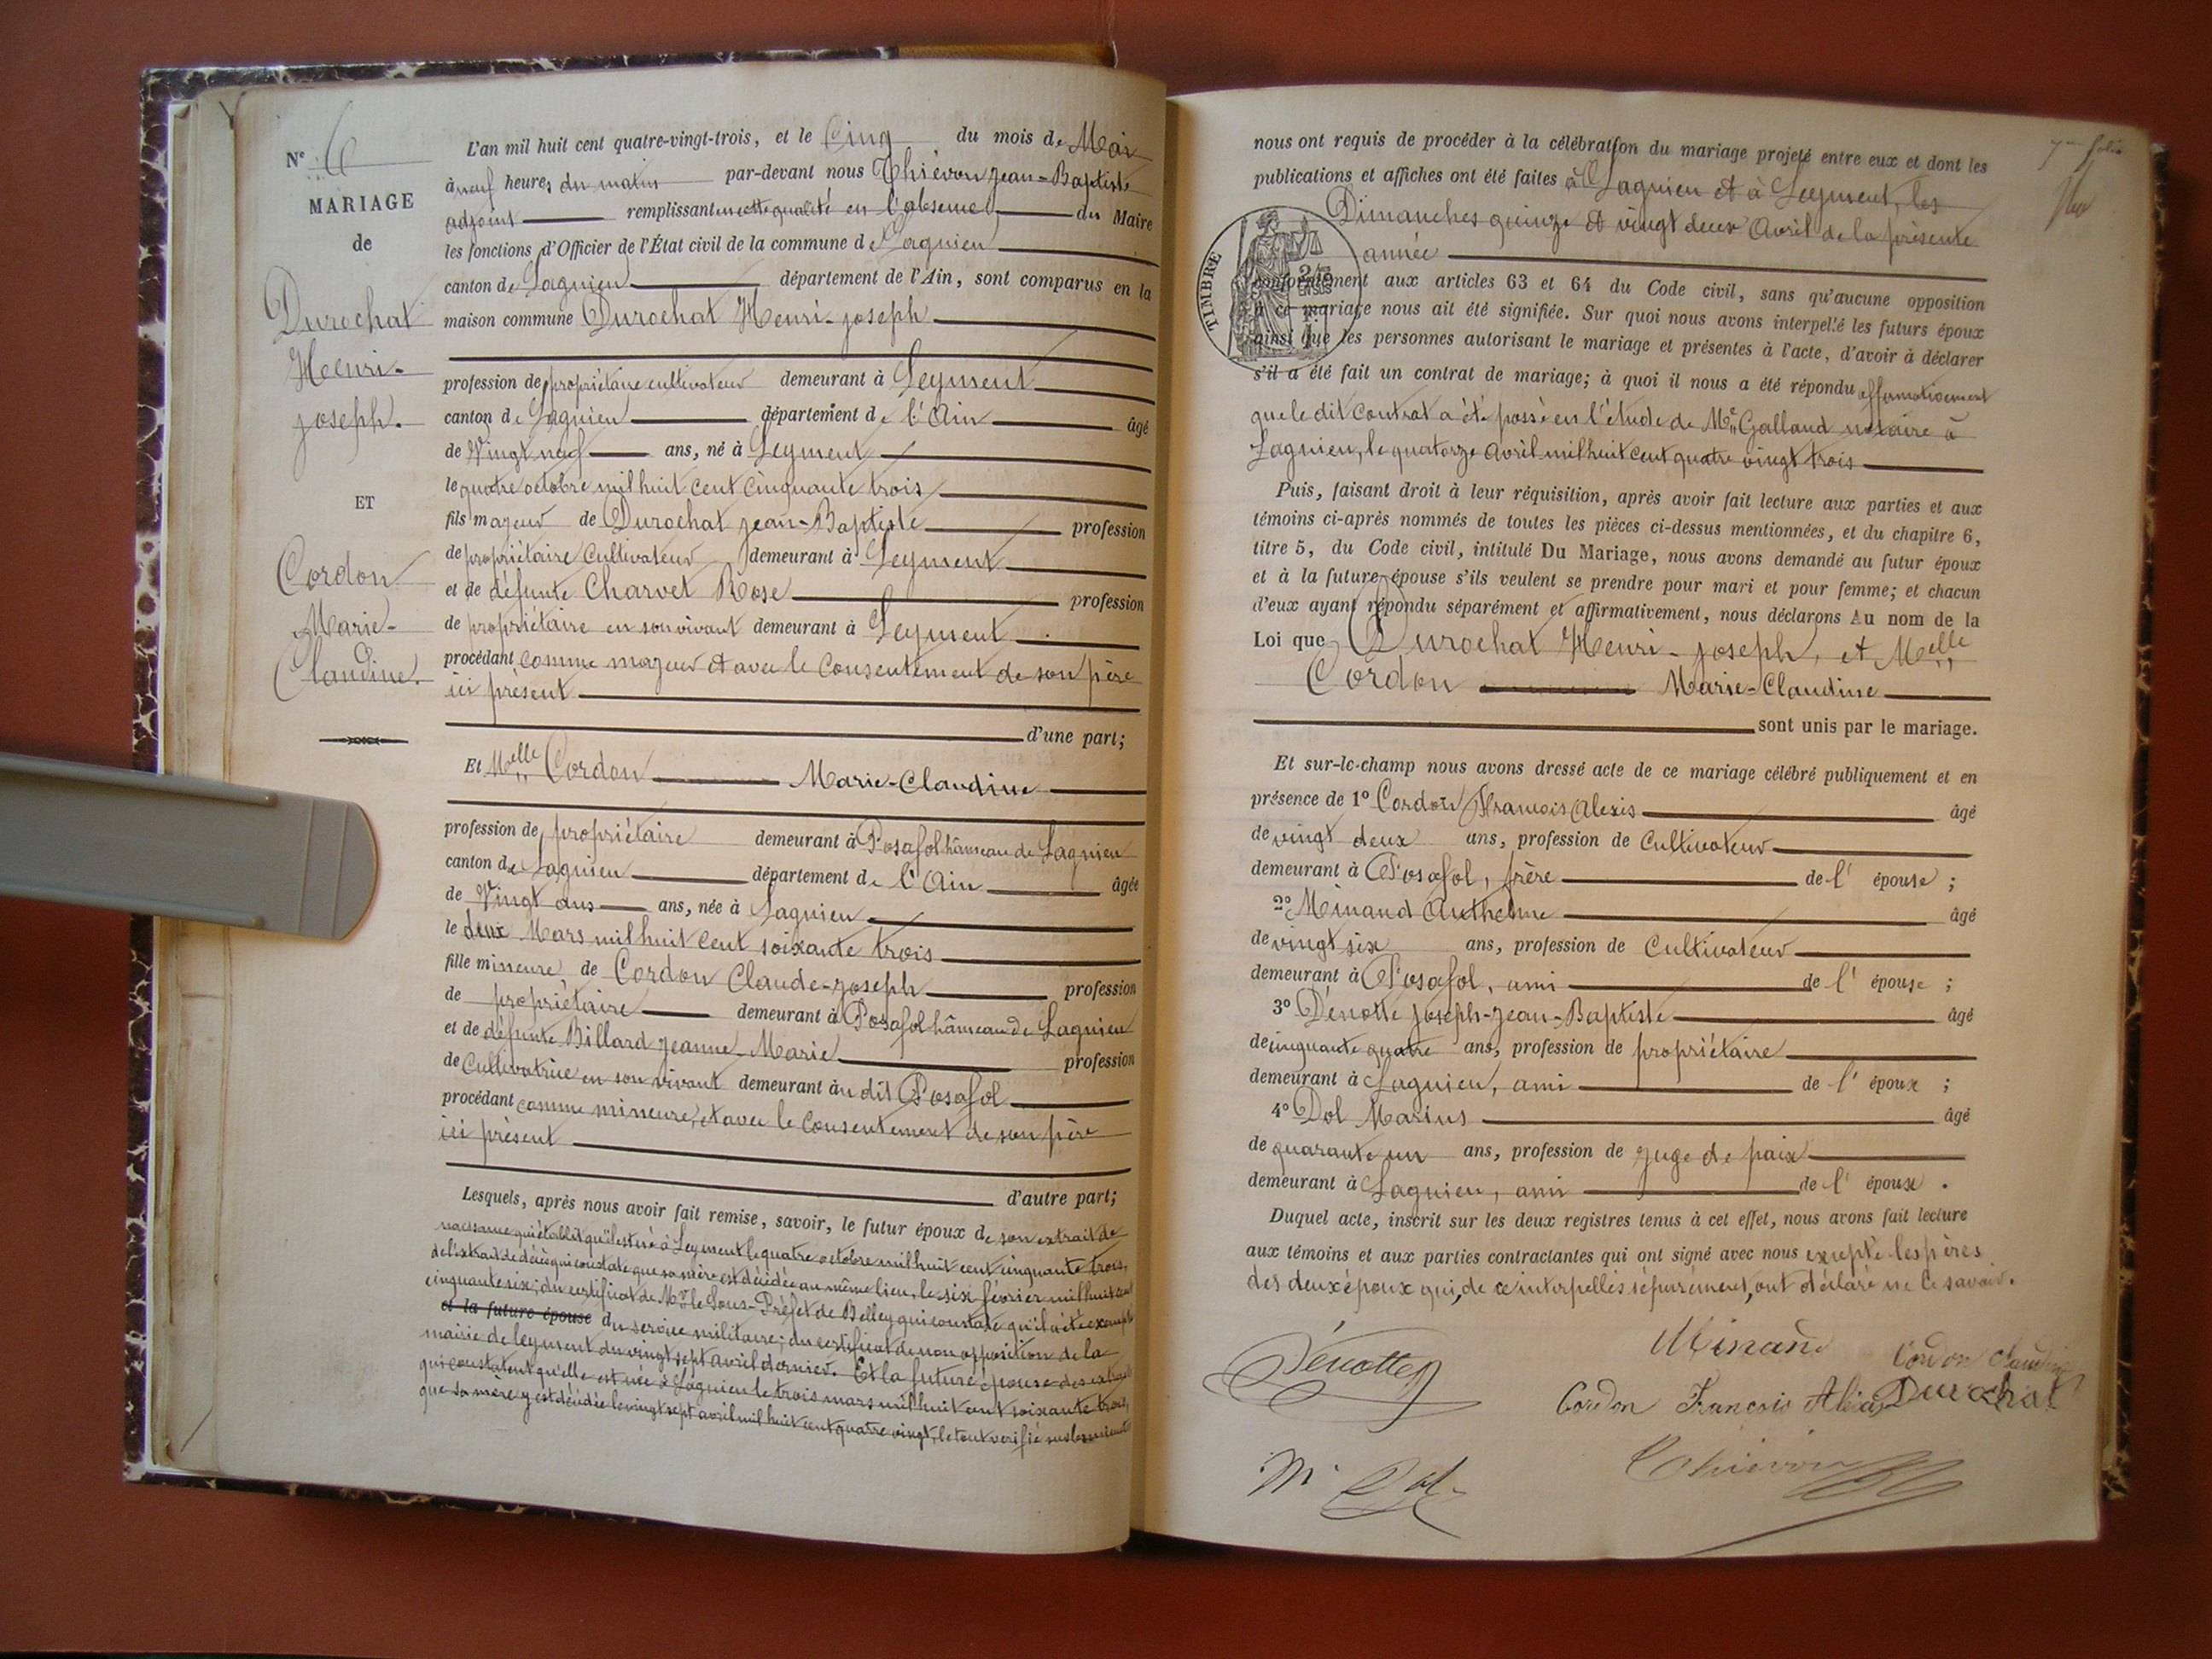 N° 6
MARIAGE
de
Durochat
Henri-
joseph.
ET
Cordon
Marie-
Claudine.
L'an mil huit cent quatre-vingt-trois, et le Cinq du mois de Mai
à neuf heures du matin par-devant nous Thiévon Jean-Baptiste
adjoint remplissant en cette qualité en l'absence du Maire
les fonctions d'Officier de l'État civil de la commune de Lagnieu
canton de Lagnieu département de l'Ain, sont comparus en la
maison commune Durochat Henri-joseph
profession de propriétaire cultivateur demeurant à Leyment
canton de Lagnieu département de l'Ain âgé
de Vingt neuf ans, né à Leyment
le quatre octobre mil huit cent cinquante trois
fils majeur de Durochat jean-Baptiste profession
de propriétaire Cultivateur demeurant à Leyment
et de défunte Charvet Rose profession
de propriétaire en son vivant demeurant à Leyment
procédant comme majeur et avec le Consentement de son père
ici présent
d'une part;
Et Melle Cordon Marie-Claudine
profession de propriétaire demeurant à Posafol hâmeau de Lagnieu
canton de Lagnieu département de l'Ain âgée
de Vingt ans ans, née à Lagnieu
le deux Mars mil huit cent soixante trois
fille mineure de Cordon Claude-joseph profession
de propriétaire demeurant à Posafol hâmeau de Lagnieu
et de défunte Billard jeanne-Marie profession
de Cultivatrice en son vivant demeurant au dit Posafol
procédant comme mineure, et avec le Consentement de son père
ici présent
d'autre part;
Lesquels, après nous avoir fait remise, savoir, le futur époux de son extrait de
naissance qui établit qu'il est né à Leyment le quatre octobre mil huit cent cinquante trois,
de l'extrait de décès qui constate que sa mère est décédée au même lieu, le six février mil huit cent
cinquante six; du certificat de Mr le Sous-Préfet de Belley qui constate qu'il a été exempté
et la future épouse du service militaire; du certificat de non opposition de la
mairie de leyment du vingt sept avril dernier. Et la future épouse des extraits
qui constatent qu'elle est née à Lagnieu le trois mars mil huit cent soixante trois,
que sa mère y est décédée le vingt sept avril mil huit cent quatre vingt, le tout verifié sur
7me folio
nous ont requis de procéder à la célébration du mariage projeté entre eux et dont les
publications et affiches ont été faites à Lagnieu et à Leyment, les
Dimanches quinze et vingt deux Avril de la présente
année
TIMBRE
conformément aux articles 63 et 64 du Code civil, sans qu'aucune opposition
à ce mariage nous ait été signifiée. Sur quoi nous avons interpellé les futurs époux
ainsi que les personnes autorisant le mariage et présentes à l'acte, d'avoir à déclarer
s'il a été fait un contrat de mariage; à quoi il nous a été répondu affirmativement
que le dit Contrat a été passé en l'étude de Me Galland notaire à
Lagnieu, le quatorze avril mil huit cent quatre vingt trois
Puis, faisant droit à leur réquisition, après avoir fait lecture aux parties et aux
témoins ci-après nommés de toutes les pièces ci-dessus mentionnées, et du chapitre 6,
titre 5, du Code civil, intitulé Du Mariage, nous avons demandé au futur époux
et à la future épouse s'ils veulent se prendre pour mari et pour femme; et chacun
d'eux ayant répondu séparément et affirmativement, nous déclarons Au nom de la
Loi que Durochat Henri-joseph, et Melle
Cordon Marie-Claudine
sont unis par le mariage.
Et sur-le-champ nous avons dressé acte de ce mariage célébré publiquement et en
présence de 1° Cordon François Alexis âgé
de vingt deux ans, profession de Cultivateur
demeurant à Posafol, frère de l'épouse;
2° Minand Anthelme âgé
de vingt six ans, profession de Cultivateur
demeurant à Posafol, ami de l'épouse;
3° Dénotte joseph-jean-Baptiste âgé
de cinquante quatre ans, profession de propriétaire
demeurant à Lagnieu, ami de l'époux;
4° Dol Marius âgé
de quarante un ans, profession de juge de paix
demeurant à Lagnieu, ami de l'époux.
Duquel acte, inscrit sur les deux registres tenus à cet effet, nous avons fait lecture
aux témoins et aux parties contractantes qui ont signé avec nous excepté les pères
des deux époux qui, de ce interpellés séparement, ont déclaré ne le savoir.
Dénotte
Minand
Cordon Claudine
Cordon François Alexis
Durochat
M Dol
Thiévon